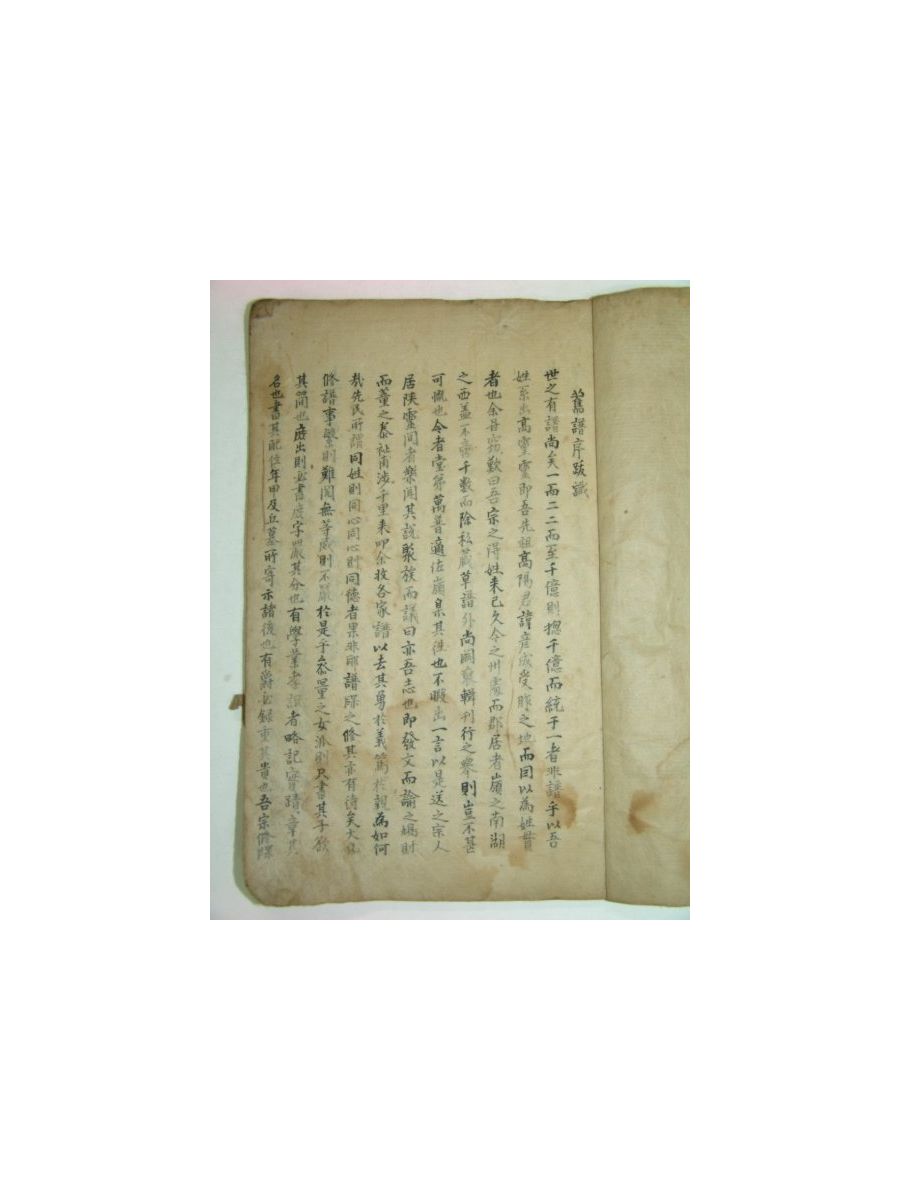 舊譜序跋識
世之有譜尚矣一而二二而至千億則摠千億而統于一者非譜乎以吾
姓系出高靈靈即吾先祖高陽君諱彦成受胙之地而因以為姓貫
者也余嘗竊歎曰吾宗之得姓来已久令之州處而郡居者嶺之南湖
之西盖不啻千數而除私藏草譜外尚闕裒輯刊行之擧則豈不甚
可慨也令者堂弟萬普適佐嶺臬其徃也不暇出一言以是送之宗人
居陝靈間者樂聞其說聚族而議曰亦吾志也即發文而諭之竭財
而董之泰祉甫涉千里来叩余收各家譜以去其勇於義篤於親為如何
㢤先民所謂同姓則同心同心則同德者果非耶譜牒之修其亦有待矣大凡
修譜事繁則難閲無等威則不嚴於是乎叅量之女派則只書其子欲
其簡也庶出則必書庶字嚴其分也有學業孝 者略記實蹟 其
名也書其配位年甲及丘墓所寄示諸後也有爵必録重其貴也吾宗修牒